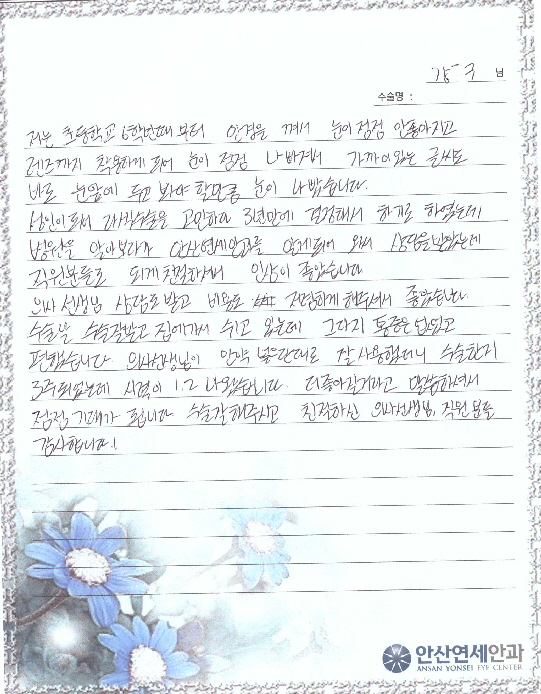 강 우 님
수술명 :
저는 초등학교 6학년때 부터 안경을 껴서 눈이 점점 안좋아지고
렌즈까지 착용하게 되어 눈이 점점 나빠져서 가까이 있는 글씨도
바로 눈앞에 두고 봐야 할만큼 눈이 나빴습니다.
성인이 되서 라식수술을 고민하다 3년만에 결정해서 하기로 하였는데
병원을 알아보다가 안산연세안과를 알게되어 와서 상담을 받았는데
직원분들도 되게 친절하셔서 인상이 좋았습니다
의사 선생님 상담도 받고 비용도 저렴하게 해주셔서 좋았습니다
수술을 수술잘받고 집에가서 쉬고 있는데 그다지 통증은 없었고
편했습니다 의사선생님이 안약 넣으란대로 잘 사용했더니 수술한지
3주 되었는데 시력이 1.2 나왔습니다. 더좋아질거라고 말씀하셔서
점점 기대가 됩니다 수술잘해주시고 친절하신 의사선생님, 직원분들
감사합니다!
안산연세안과
ANSAN YONSEI EYE CENTER